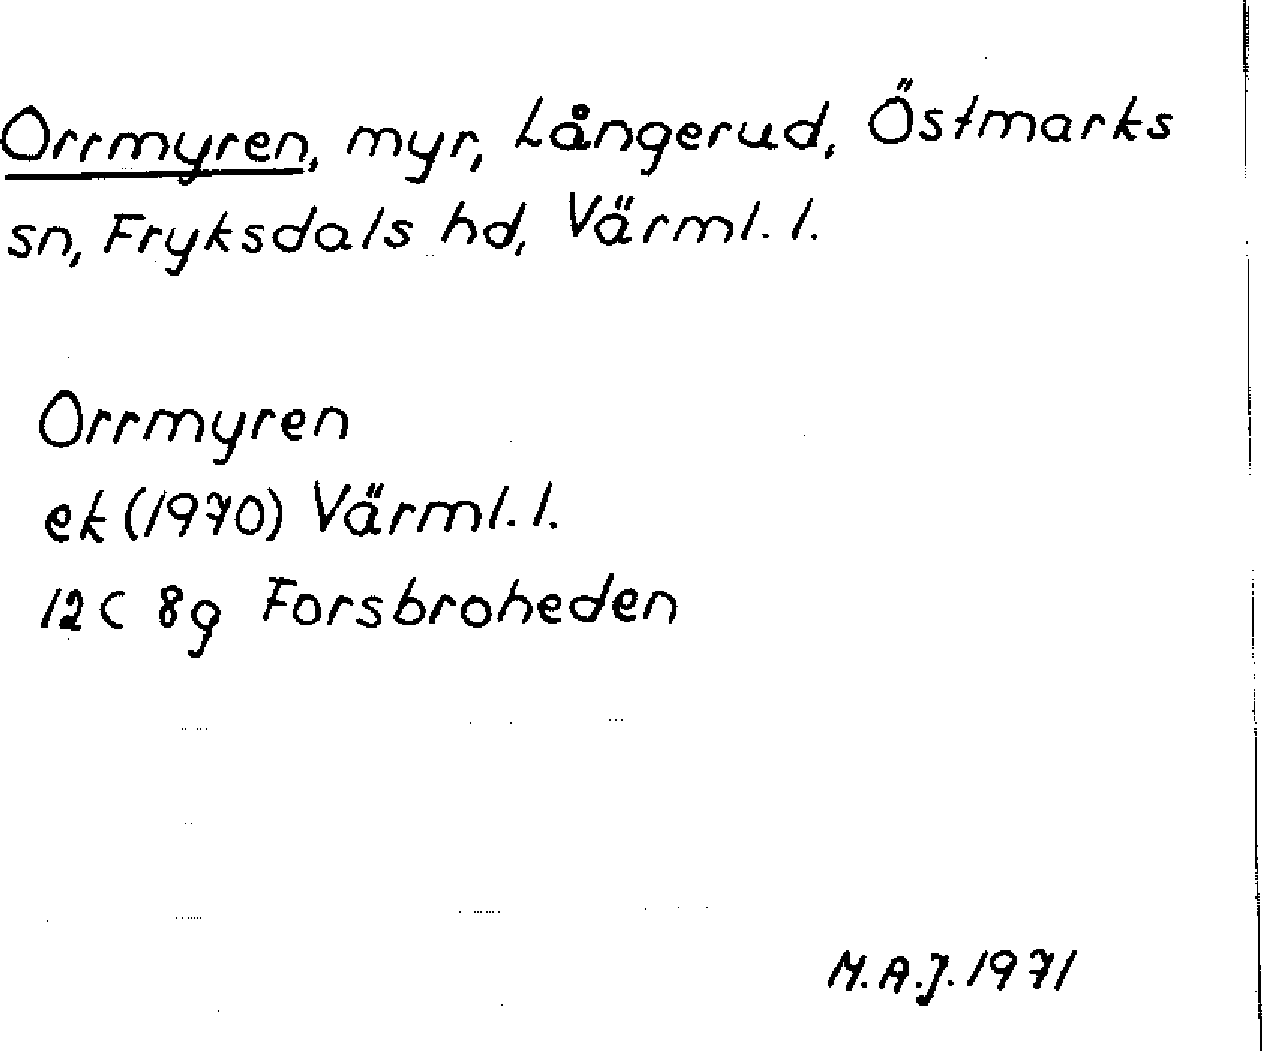 Orrmyren, myr, Långerud, Östmarks
sn, Fryksdals hd, Värml. l.
Orrmyren
ek (1970) Värml. l.
12 C 8g Forsbroheden
M.A.J. 1971